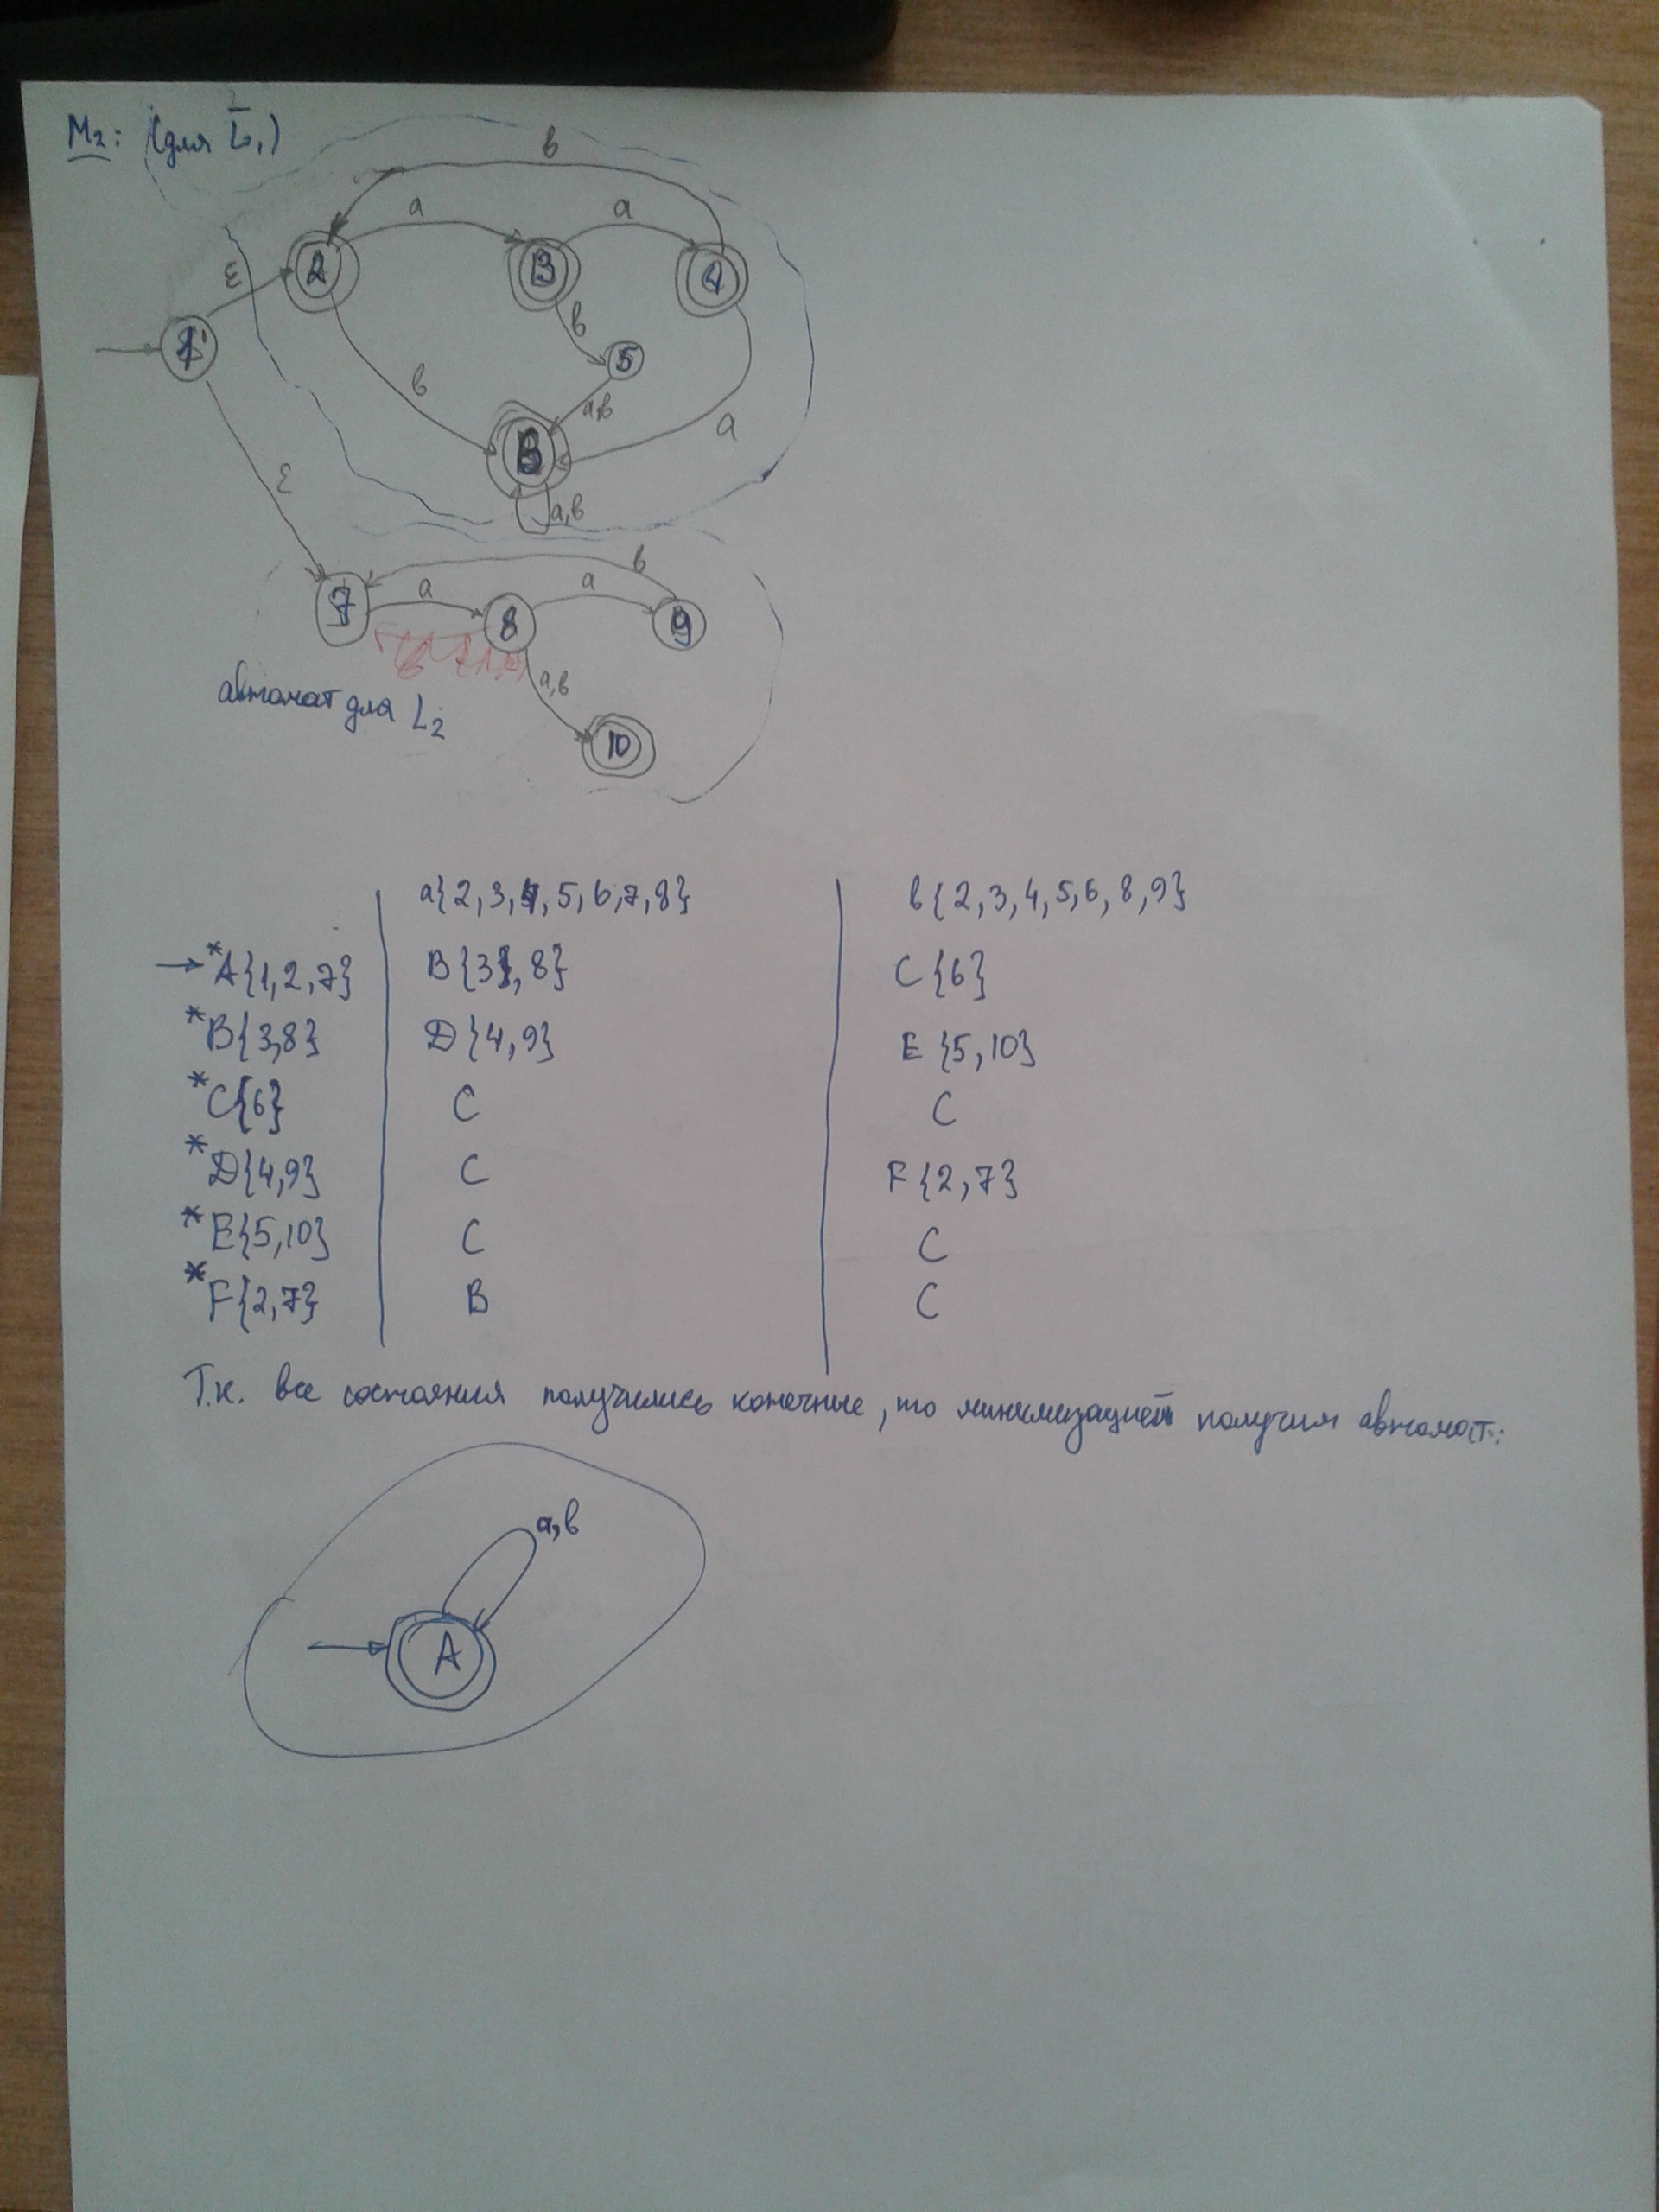 M2: (для L̄1)
в
a
a
ε
2
3
4
1
в
5
в
a,в
a
ε
a,в
в
a
a
7
8
9
a,в
автомат для L2
10
a{2,3,4,5,6,7,8}
в{2,3,4,5,6,8,9}
→*A{1,2,7} B{3,8} C{6}
*B{3,8} D{4,9} E{5,10}
*C{6} C C
*D{4,9} C F{2,7}
*E{5,10} C C
*F{2,7} B C
Т.к. все состояния получились конечные, то минимизацией получим автомат:
a,в
A